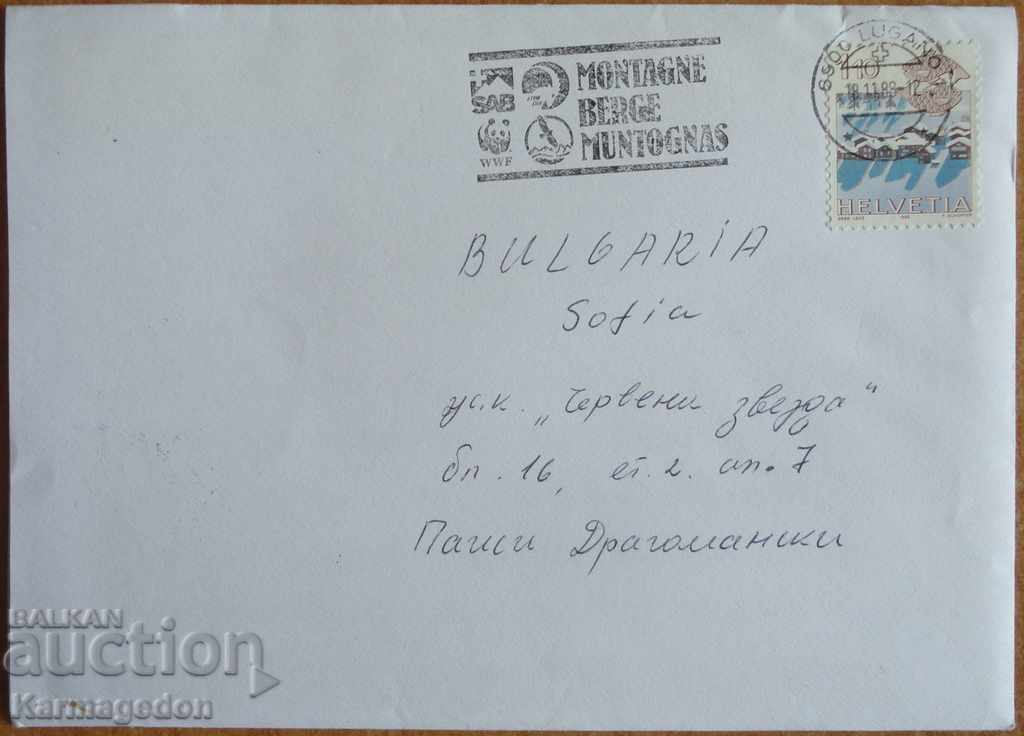 MONTAGNE
BERGE
MUNTOGNAS
SAB
WWF
6900 LUGANO
110
HELVETIA
BULGARIA
Sofia
ж.к. „Червени звезда“
бл. 16, ет. 2. ап. 7
Паиси Драгомански
BALKAN
auction
Karmagedon